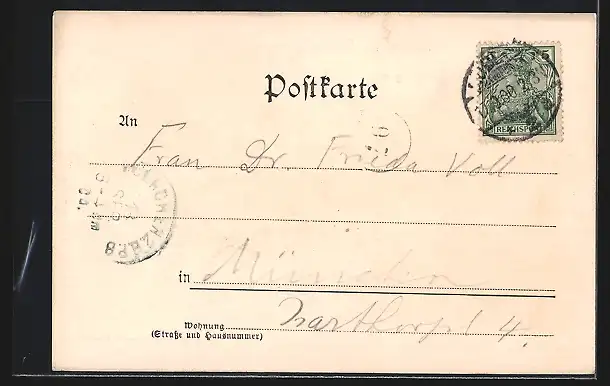 Postkarte
An
Frau Dr. Frieda Voll
in München
Wohnung
(Straße und Hausnummer)
4.
5
REICHSPOST